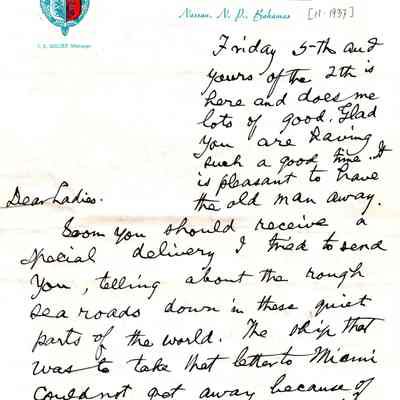 Nassau, N. P., Bahamas [11-1937]
Manager
Friday 5th and
yours of the 2th is
here and does me
lots of good. Glad
You are having
such a good time. It
is pleasant to have
the old man away.
Dear Ladies.
Soom You should receive a
special delivery I tried to send
You, telling about the rough
sea roads down in these quiet
parts of the world. The ship that
was to take that letter to Miami
could not get away because of